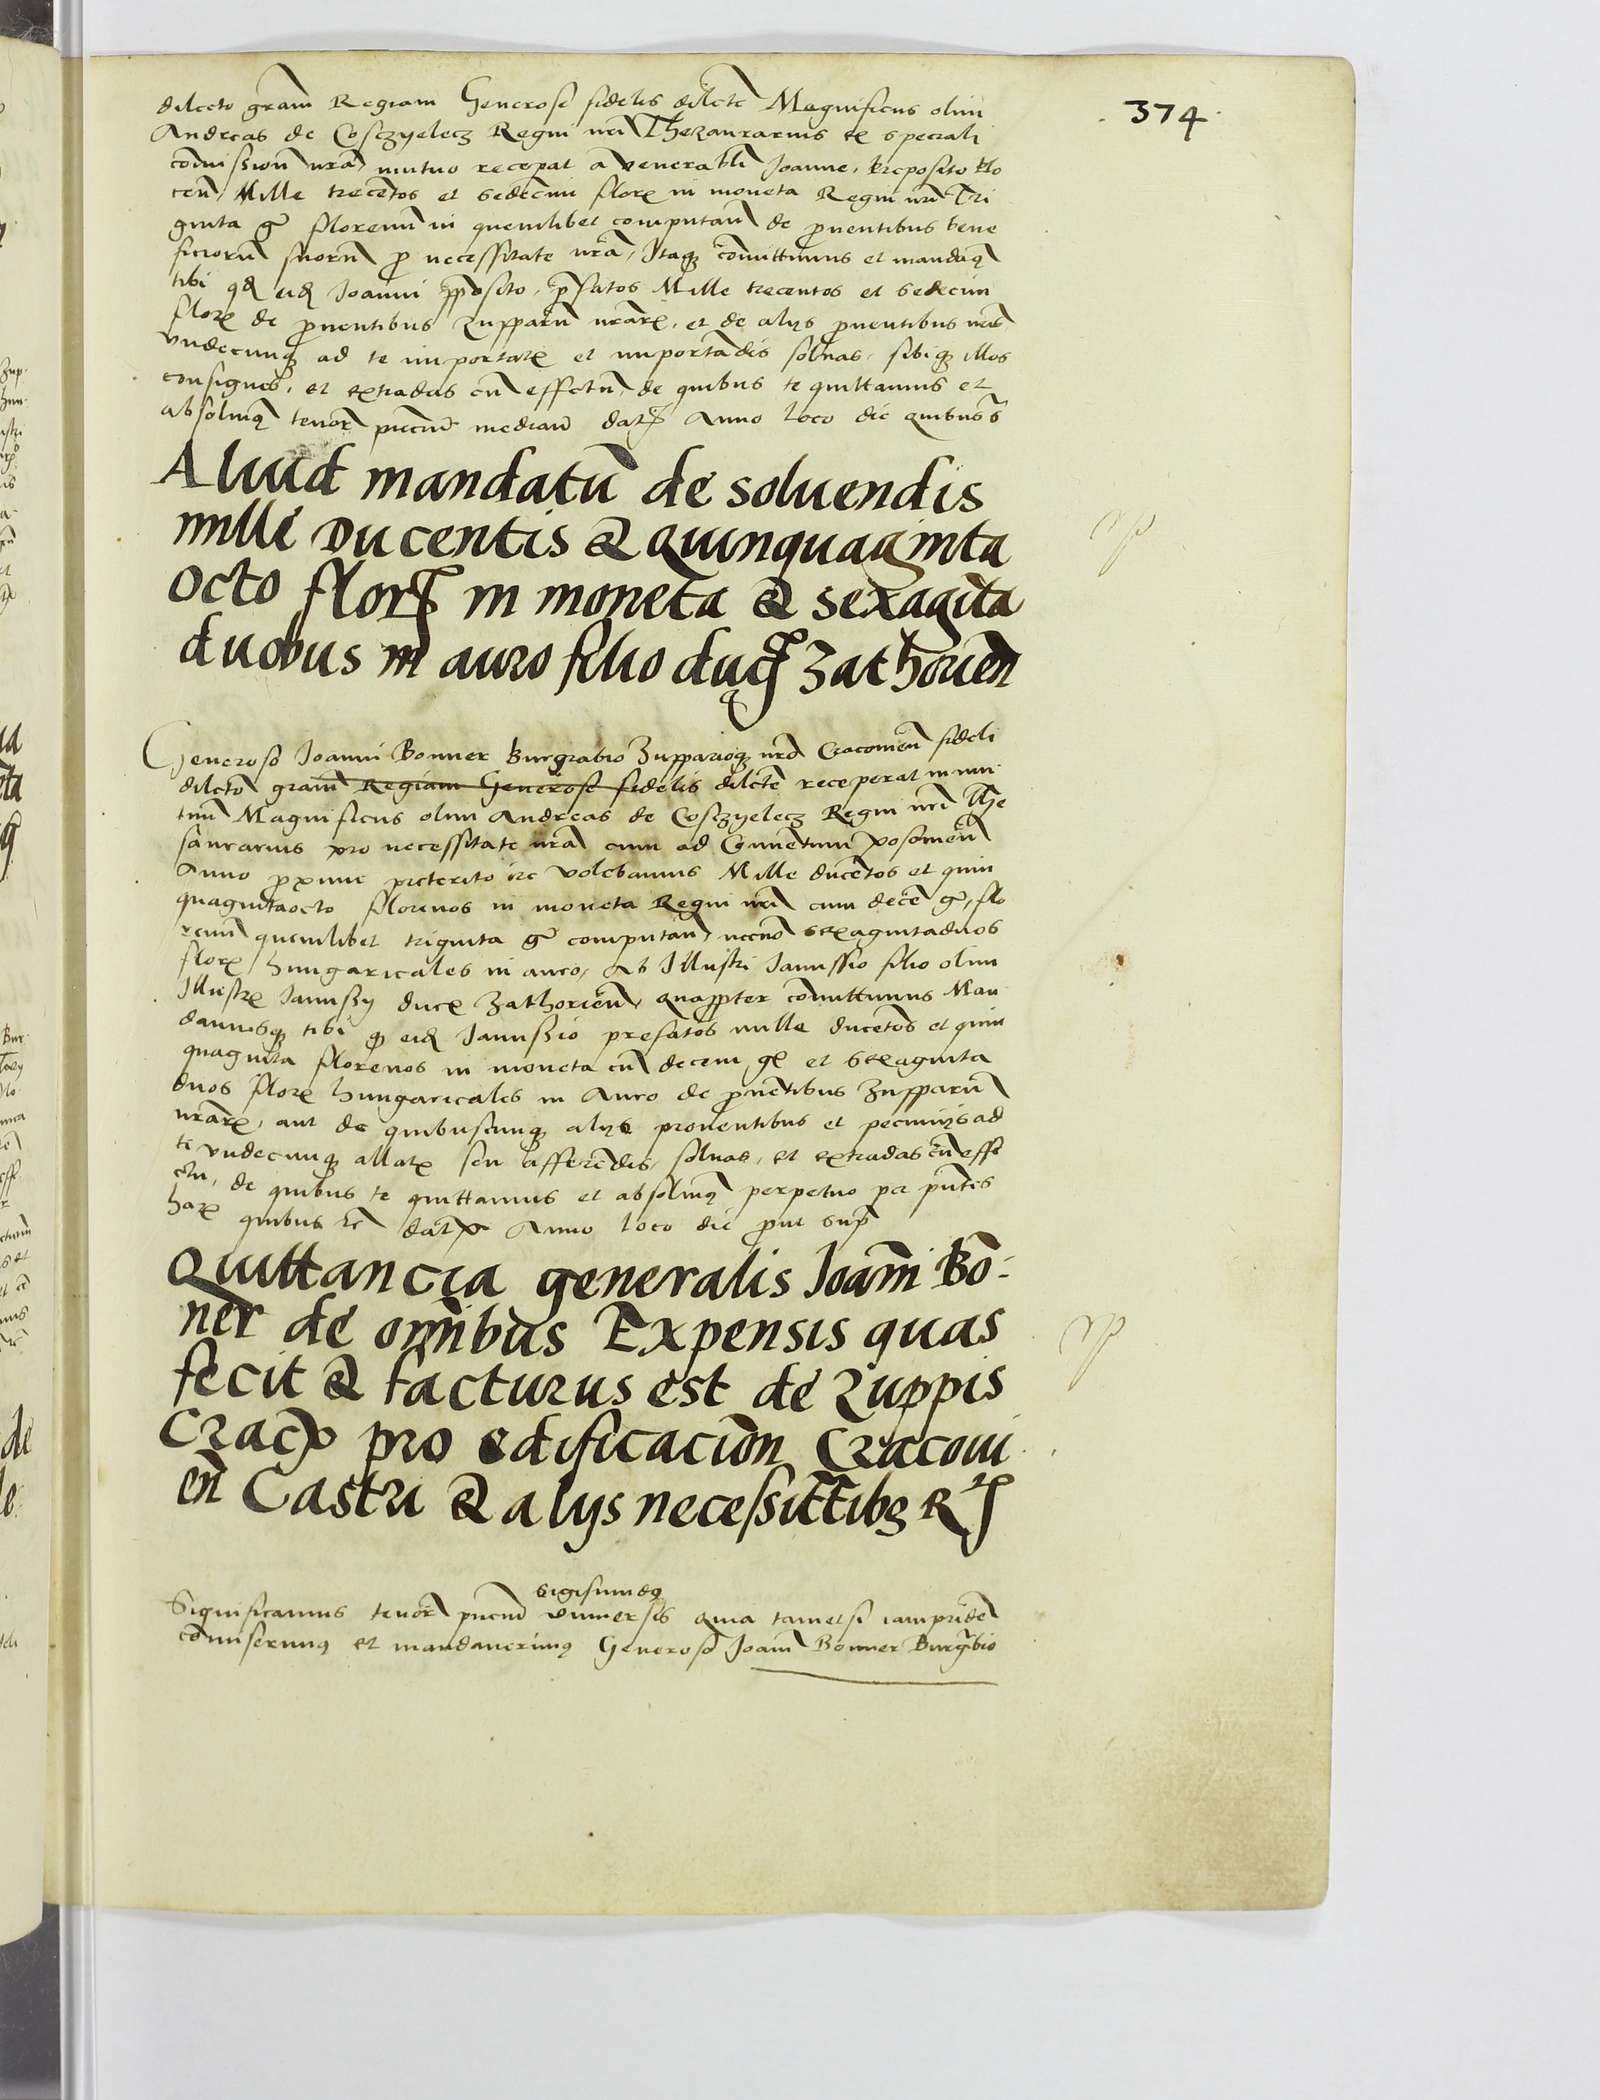 374
dilecto gram̄ Regiam Generose fidelis dilcte Magnificus olim
Andreas de Cosczyelecz Regni nrī Thezaurarius ex speciali
com̄ission̄ nrā mutuo recepat a venerabli Joanne, preposito Plo
cen̄, Mille trecētos et sedecim flore in moneta Regni nrī Tri
ginta gr̄ florenum in quemlibet computan̄ de ꝓuentibus bene
ficiorum̄ suorum̄ ꝓ necessitate nrā, Itaqꝫ com̄ittimus et mandaꝰ
tibi qd eid Joanni ppposito, prefatos Mille trecentos et sedecim
flore de ꝓuentibus Zupparum̄ nrāre, et de alijs ꝓuentibus nrīs
vndecunqꝫ ad te importatꝭ et importādis soluas, sibiqꝫ illos
consignes, et extradas cū effctū, de quibus te quittamus et
absoluiꝰ tenore pncium median̄ dat Anno loco die quibus s̄
Aliud mandatū de soluendis
mille Ducentis & quinquaginta
octo flor in moneta & sexagīta
duobus in auro filio duc Zathorien̄
Generoso Joanni Bonner Burgrabio Zupparioqꝫ nrō Cracouien̄ fideli
dilcto gram̄ Regiam Generose fidelis dilcte receperat in mu
tuum Magnificus olim Andreas de Cosczyelecz Regni nrī The
saurarius pro necessitate nrā cum ad Conuētum Posonien̄
Anno ꝓxime preterito ire volebamus Mille ducētos et quin
quagintaocto florenos in moneta Regni nrī cum decē gr̄, flo
renum quemlibet triginta gr̄ computan̄, necnō sexagintaduos
flore hungaricales in auro, Ab Illustri Janussio filio olim
Illustre Janussÿ duce Zathorien̄, quappter com̄ittimus Man
damusqꝫ tibi qd eid Janussio prefatos mille ducētos et quin
quaginta florenos in moneta cū decem gr̄ et sexaginta
duos flore hungaricales in Auro de ꝓuētibus Zupparum̄
nrāre, aut de quibuscunqꝫ alijs prouentibus et pecunijs ad
te vndecunqꝫ allatꝭ seu afferēdis, soluas, et extradas cū effe
ctu, de quibus te quittamus et absoluiꝰ perpetuo per pn̄tes
hare quibus rc̄ dat Anno loco die ꝓut sup̄
Quittancia generalis Joan̄i Bo-
ner de om̄ibus Expensis quas
fecit & facturus est de Zuppis
Crac pro edificacion̄ Cracoui
en̄ Castri & alijs necessittibꝫ R
Sigismūdꝰ
Significamus tenore pncium vniuersis quia tametsi iampridē
com̄iserimꝰ et mandauerimꝰ Generoso Joan̄i Bonner Burgrbio